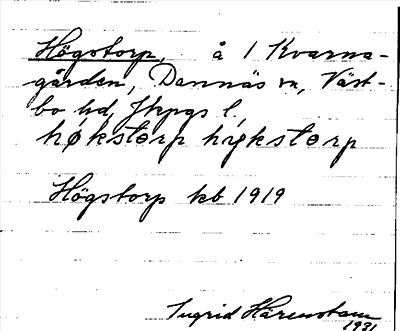 Högstorp, å 1 Kvarna-
gården, Dannäs sn, Väst-
bo hd, Jkpgs l.
høkstɵrp hígkstɵrp
Högstorp kb 1919
Ingrid Härenstam
1931